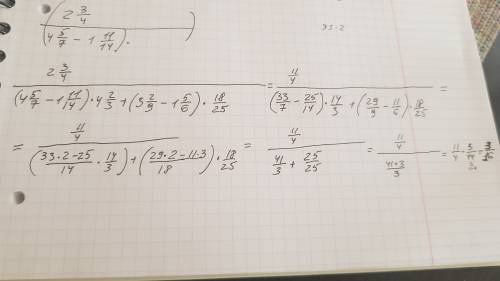 ( 2 3/4 / (4 5/7 − 1 11/14). )
2 3/4 / ((4 5/7 − 1 11/14) · 4 2/3 + (3 2/9 − 1 5/6) · 18/25) = 11/4 / ((33/7 − 25/14) · 14/3 + (29/9 − 11/6) · 18/25) =
= 11/4 / ((33·2−25/14 · 14/3) + (29·2−11·3/18) · 18/25) = 11/4 / (41/3 + 25/25) = 11/4 / (41+3/3) = 11/4 · 3/44 = 3/16